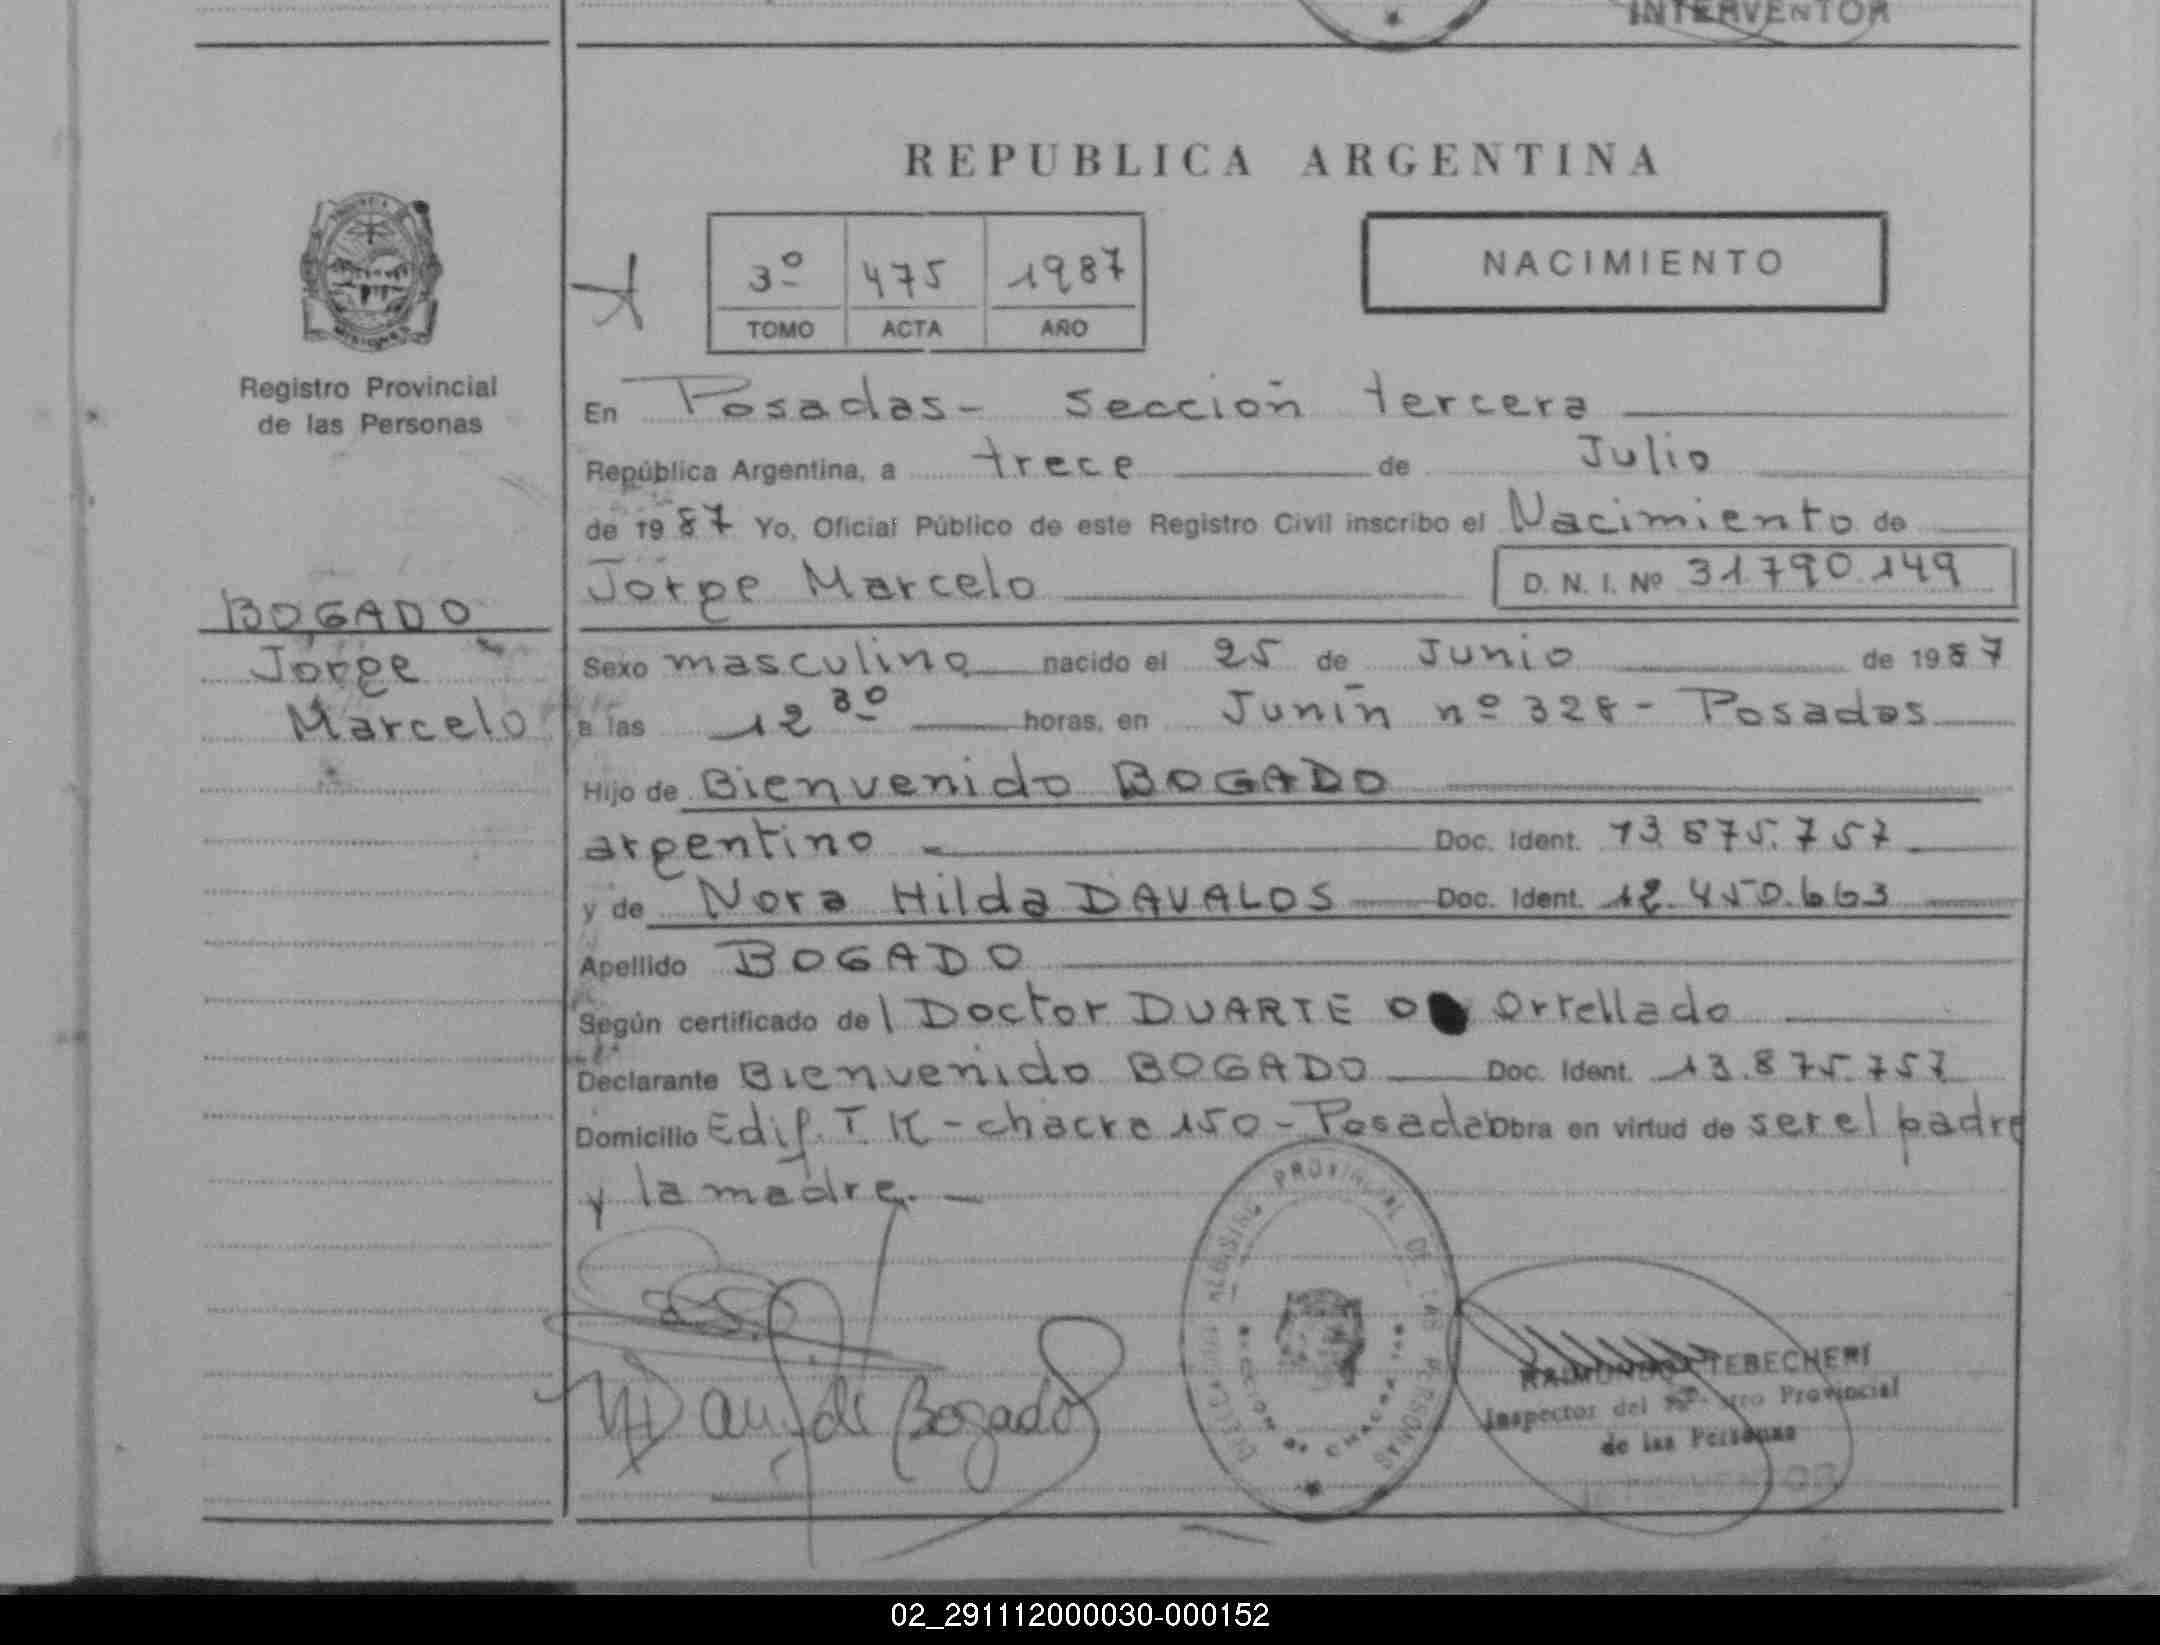 INTERVENTOR
REPUBLICA ARGENTINA
3º 475 1987
TOMO ACTA AÑO
NACIMIENTO
Registro Provincial
de las Personas
En Posadas - Sección tercera
República Argentina, a trece de Julio
de 1987 Yo, Oficial Público de este Registro Civil inscribo el Nacimiento de
Jorge Marcelo D. N. I. Nº 31.790.149
BOGADO
Jorge
Marcelo
Sexo masculino nacido el 25 de Junio de 1987
a las 12 30 horas, en Junín nº 328 - Posadas
Hijo de Bienvenido BOGADO
argentino - Doc. Ident. 13.875.757
y de Nora Hilda DAVALOS Doc. Ident. 12.450.663
Apellido BOGADO
Según certificado del Doctor DUARTE O Ortellado
Declarante Bienvenido BOGADO Doc. Ident. 13.875.757
Domicilio Edif. T. K - chacra 150 - Posadas Obra en virtud de ser el padre
y la madre. -
de Bogado
PROVINCIAL DE LAS PERSONAS
RAIMUNDO TEBECHERI
Inspector del Registro Provincial
de las Personas
02_291112000030-000152